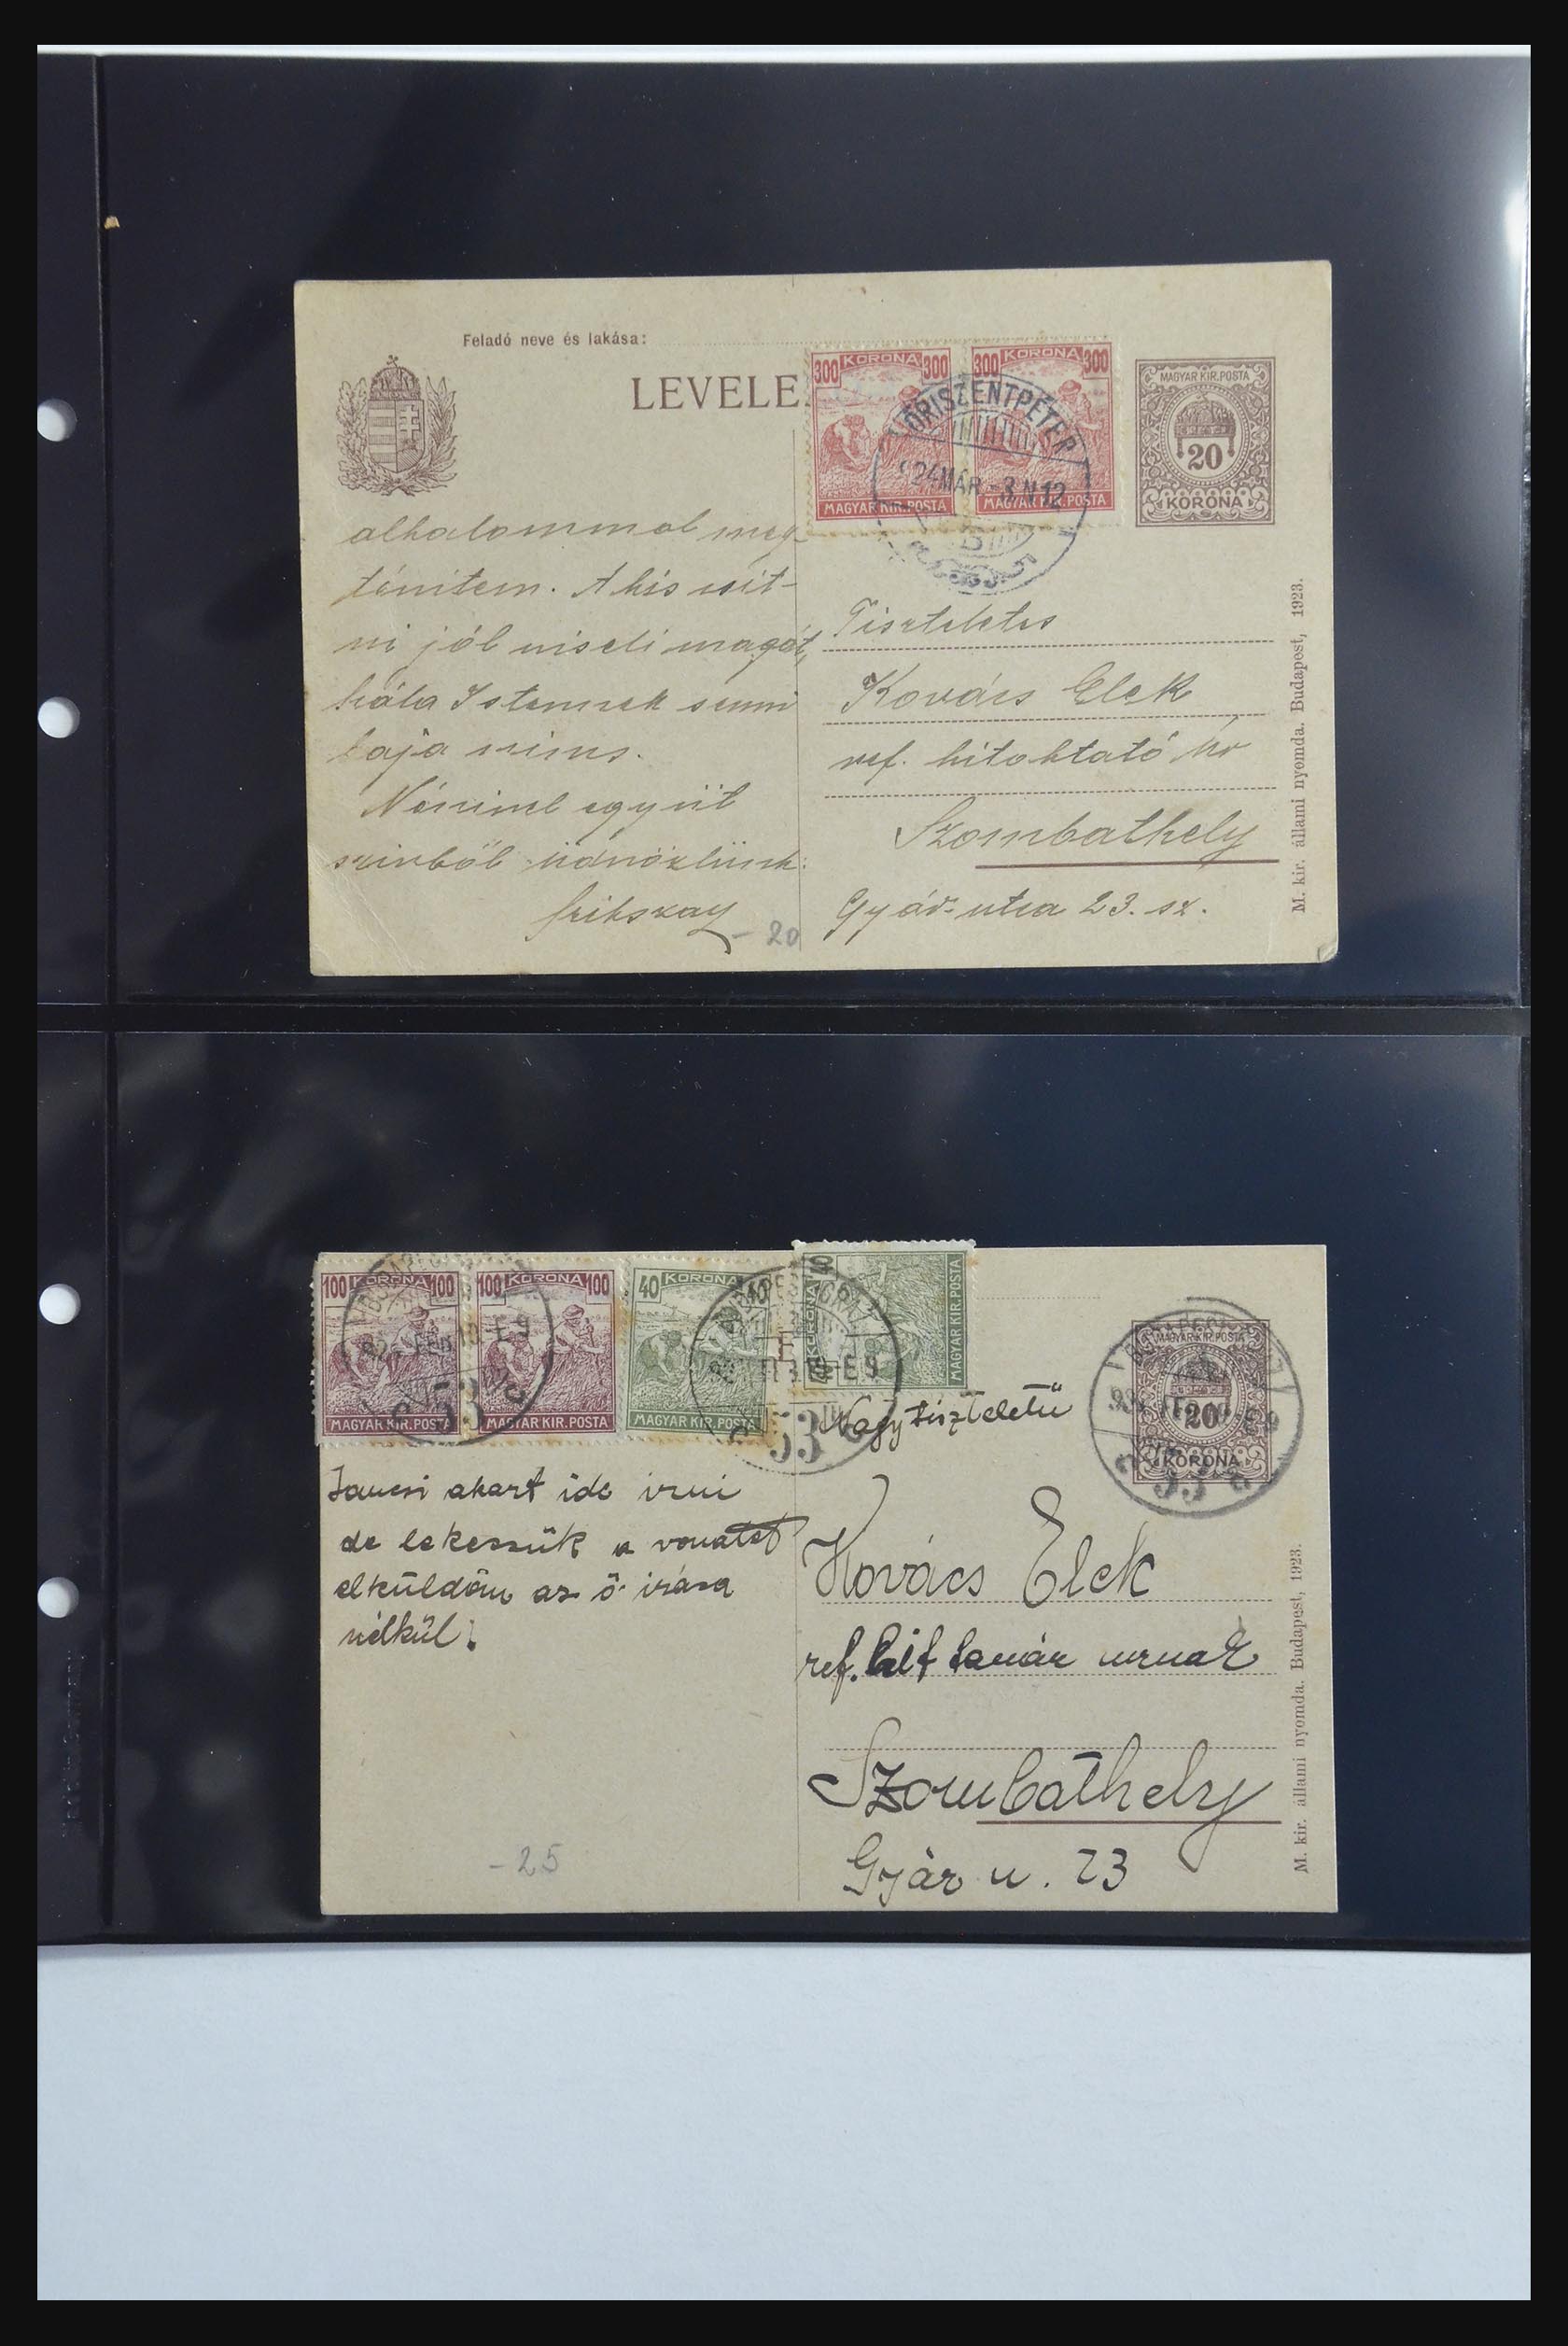 Feladó neve és lakása:
LEVELE
300 KORONA 300
MAGYAR KIR.POSTA
300 KORONA 300
MAGYAR KIR.POSTA
ŐRISZENTPÉTER
924 MÁR -3.N12
MAGYAR KIR.POSTA
20
KORONA
alkalommal meg
témitem. A kis
ni jól viseli magát,
hála Istennek semmi
baja nincs.
Nénivel együtt
szivből üdvözlünk:
- 20
Tiszteletes
Kovács Elek
ref. hitoktató úr
Szombathely
Gyár-utca 23. sz.
M. kir. állami nyomda. Budapest, 1923.
100 KORONA 100
MAGYAR KIR.POSTA
100 KORONA 100
MAGYAR KIR.POSTA
40 KORONA 40
MAGYAR KIR.POSTA
40 KORONA
MAGYAR KIR.POSTA
E9
53
E9
53
MAGYAR KIR.POSTA
20
KORONA
E9
53
Jancsi akart ide irni
de lekessük a vonatot
elküldöm az ő irása
nélkül.
- 25
Nagytiszteletü
Kovács Elek
ref. hit tanár urnak
Szombathely
Gyár u. 23
M. kir. állami nyomda. Budapest, 1923.